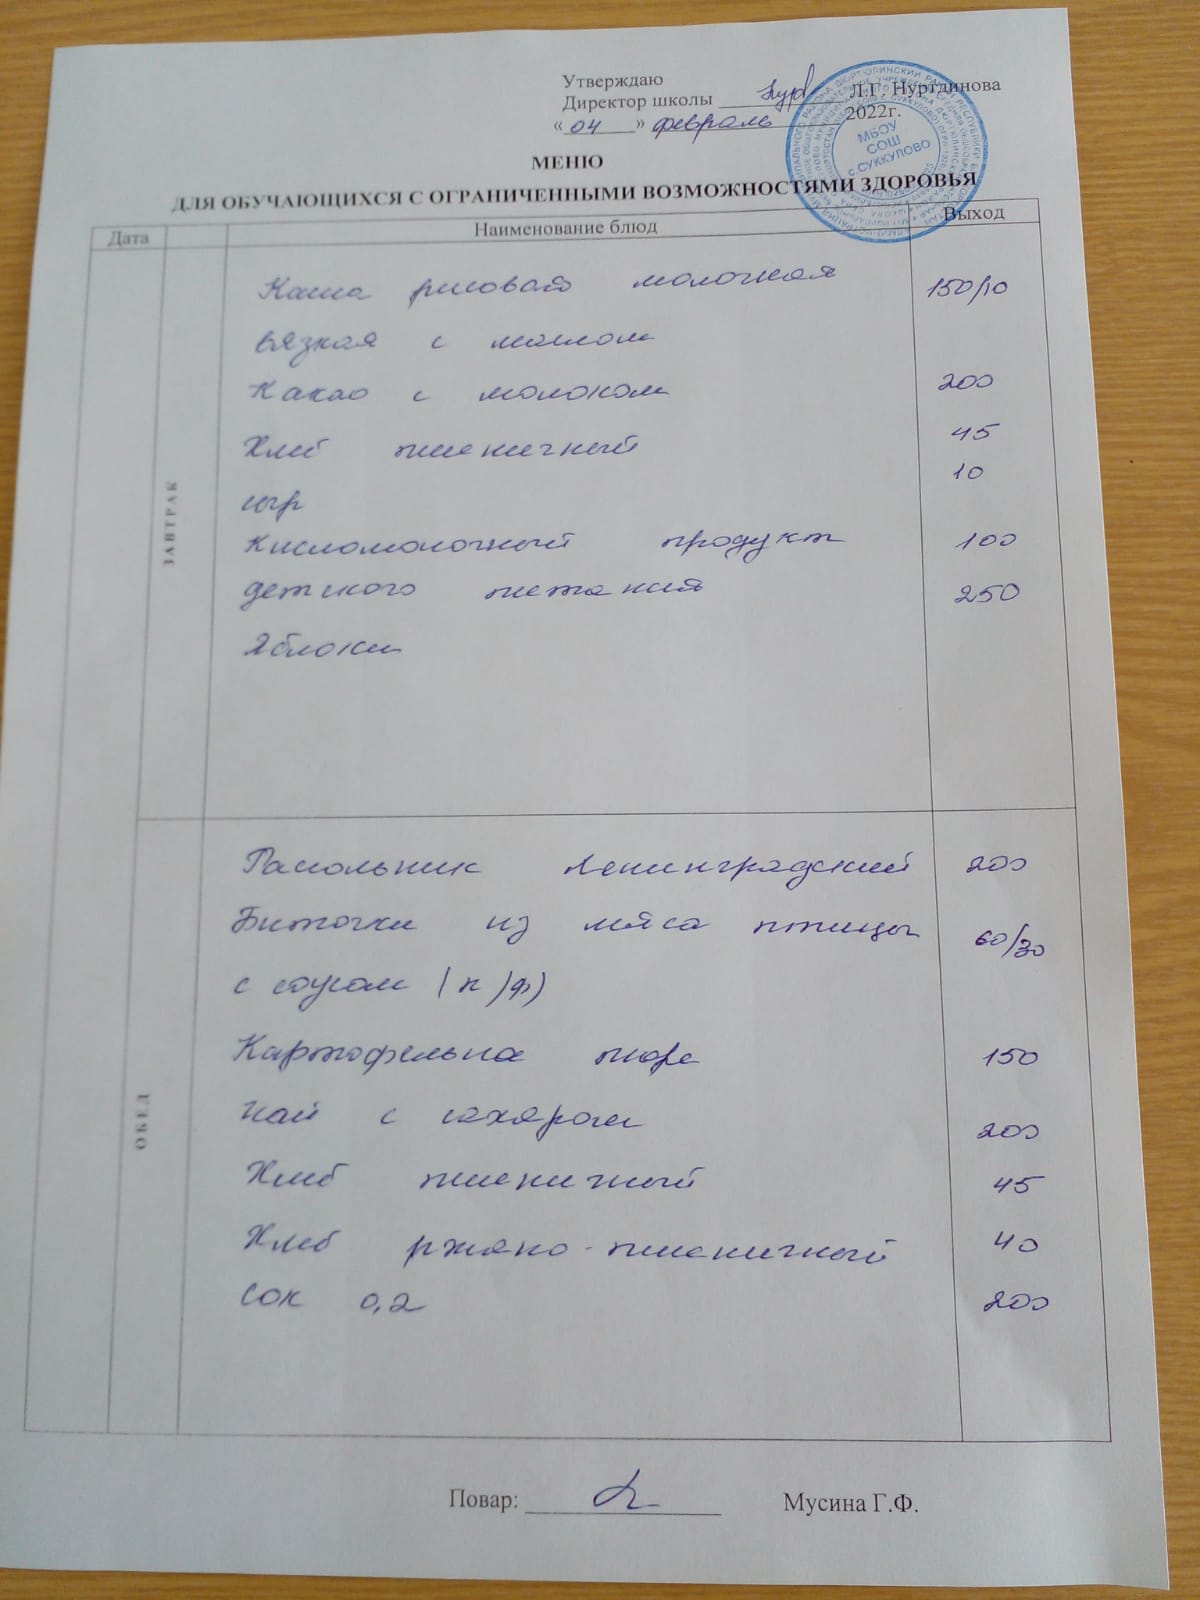 Утверждаю
Директор школы Л.Г. Нуртдинова
«04» февраль 2022г.
МБОУ
СОШ
с.СУККУЛОВО
МЕНЮ
ДЛЯ ОБУЧАЮЩИХСЯ С ОГРАНИЧЕННЫМИ ВОЗМОЖНОСТЯМИ ЗДОРОВЬЯ
Дата Наименование блюд Выход
ЗАВТРАК
Каша рисовая молочная 150/10
вязкая с маслом
Какао с молоком 200
Хлеб пшеничный 45
сыр 10
Кисломолочный продукт 100
детского питания 250
Яблоки
ОБЕД
Рассольник Ленинградский 200
Биточки из мяса птицы 60/30
с соусом (п/ф)
Картофельна пюре 150
Чай с сахаром 200
Хлеб пшеничный 45
Хлеб ржано-пшеничный 40
Сок 0,2 200
Повар: Мусина Г.Ф.